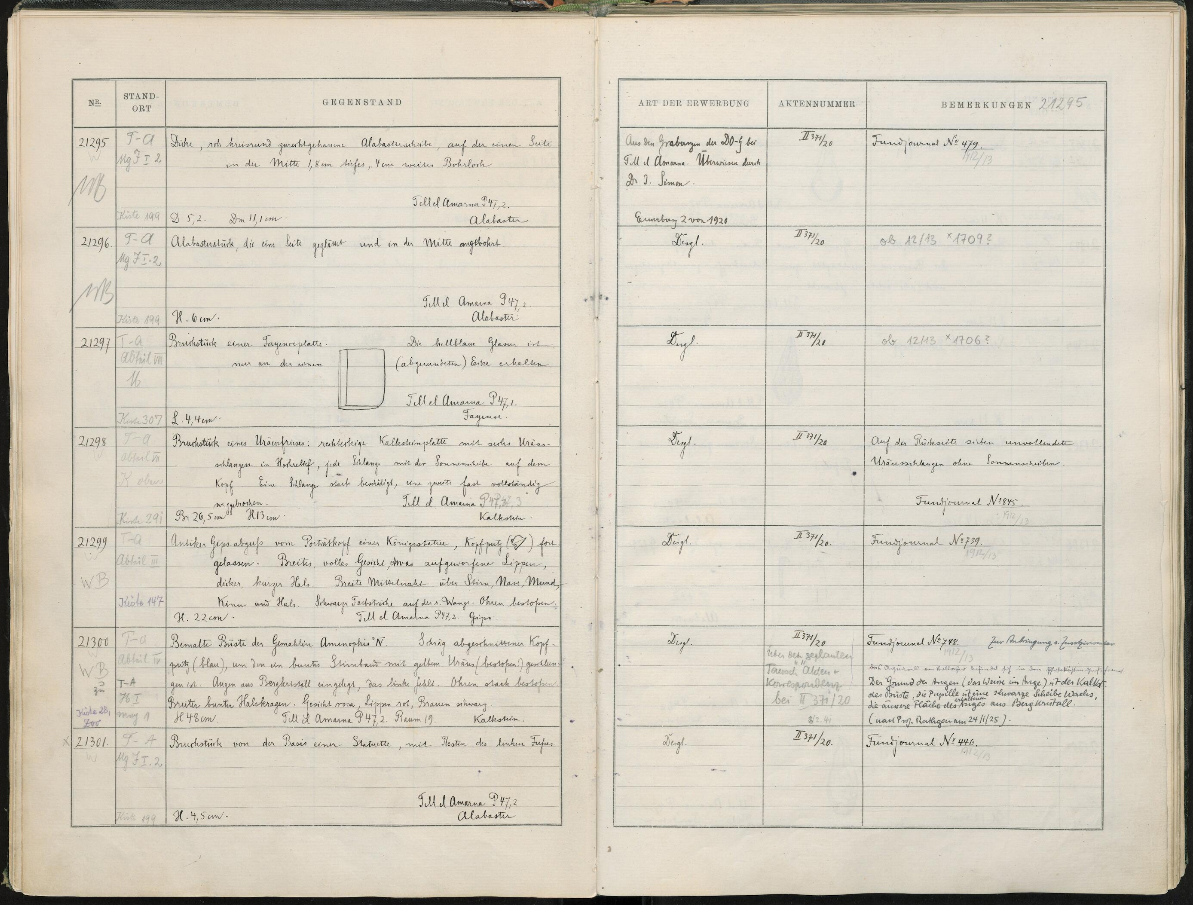 Nr.
STAND-
ORT
GEGENSTAND
21295
T-A
Mg I 2
Kiste 199
Dicke, roh kreisrund zurechtgehauene Alabasterscheibe, auf der einen Seite
in der Mitte 1,8 cm tiefes, 4 cm weites Bohrloch
Tell el Amarna P 47,2.
D 5,2. Dm 11,1 cm
Alabaster
21296.
T-A
Mg I. 2
Kiste 199
Alabasterstück, die eine Seite geglättet und in der Mitte angebohrt
Tell el Amarna P 47,2
H. 6 cm.
Alabaster
21297
T-A
Abteil VII
Kiste 307
Bruchstück einer Fayenceplatte. Die hellblaue Glasur ist
nur an der einen (abgerundeten) Ecke erhalten
Tell el Amarna P 47,1.
L. 4,4 cm.
Fayence.
21298
T-a
Abteil
Kiste
Bruchstück eines Uräenfrieses: rechteckige Kalksteinplatte mit sechs Uräus-
schlangen in Hochrelief, jede Schlange mit der Sonnenscheibe auf dem
Kopf. Eine Schlange stark beschädigt, eine zweite fast vollständig
weggebrochen. Tell el Amarna P 47,
Br 26,5 cm H 13 cm.
Kalkstein.
21299
T-a
Abteil
WB
Kiste 147
Antiker Gipsabguss vom Porträtkopf einer Königsstatue, Kopfputz fort
gelassen. Breites, volles Gesicht, etwas aufgeworfene Lippen,
dicker kurzer Hals. Breite Mittelnaht über Stirn, Nase, Mund,
Kinn und Hals. Schwarze Farbstriche auf der r. Wange. Ohren bestossen.
H. 22 cm. Tell el Amarna P 47,2. Gips
21300
T-a
Abteil
WB
T-A
Bemalte Büste der Gemahlin Amenophis' IV. Schräg abgeschnittener Kopf-
putz (blau), um den ein buntes Stirnband mit gelbem Uräus (bestossen) geschlun-
gen ist. Augen aus Bergkristall eingelegt, das linke fehlt. Ohren stark bestossen.
Breiter bunter Halskragen. Gesicht rosa, Lippen rot, Brauen schwarz.
H 48 cm Tell el Amarna P 47,2. Raum 19 Kalkstein.
x 21301.
T-A
Mg I. 2
Kiste 199
Bruchstück von der Basis einer Statuette, mit Resten des linken Fußes
Tell el Amarna P 47,2
H. 4,5 cm.
Alabaster
ART DER ERWERBUNG
AKTENNUMMER
BEMERKUNGEN 21295
Aus den Grabungen der DO-G bei
Tell el Amarna. Überwiesen durch
Dr. J. Simon.
Erwerbung 2 von 1920
II 371/20
Fundjournal No 479.
1912/13
Desgl.
II 371/20
ob 12/13 x 1709?
Desgl.
II 371/20
ob 12/13 x 1706?
Desgl.
II 371/20
Auf der Rückseite sieben unvollendete
Uräusschlangen ohne Sonnenscheiben
Fundjournal No 845.
Desgl.
II 371/20.
Fundjournal No 739.
1912/13
Desgl.
II 371/20
Ueber den geplanten
Tausch Akten u
Korrespondenz
bei II 371/20
Fundjournal No 748
1912/13
Der Grund der Augen (das Weisse im Auge) ist der Kalkst.
der Büste, die Pupille ist eine schwarze Scheibe Wachs,
die äussere Fläche des Auges aus Bergkristall.
(nach Prof. Rathgen am 24/1/25).
Desgl.
II 371/20.
Fundjournal No 446.
1912/13